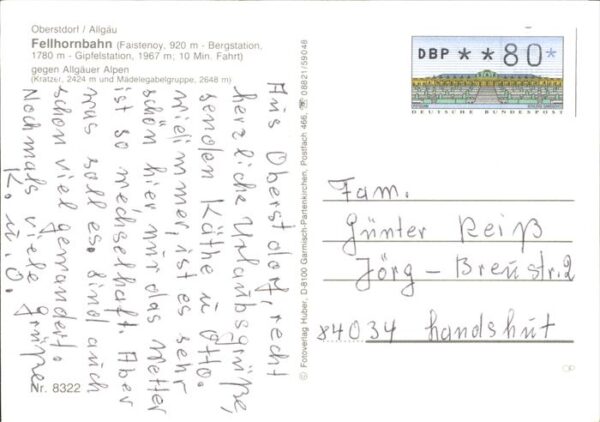 Oberstdorf / Allgäu
Fellhornbahn (Faistenoy, 920 m - Bergstation,
1780 m - Gipfelstation, 1967 m; 10 Min. Fahrt)
gegen Allgäuer Alpen
(Kratzer, 2424 m und Mädelegabelgruppe, 2648 m)
Aus Oberstdorf, recht
herzliche Urlaubsgrüße,
senden Käthe u Otto.
wie immer, ist es sehr
schön hier nur das Wetter
ist so wechselhaft. Aber
was soll es. Sind auch
schon viel gewandert.
Nochmals viele Grüße
K. u. O.
Nr. 8322
© Fotoverlag Huber, D-8100 Garmisch-Partenkirchen, Postfach 466, ☎ 08821/59048
DBP * * 80 *
DEUTSCHE BUNDESPOST
Fam.
Günter Reiß
Jörg - Breustr. 2
84034 Landshut